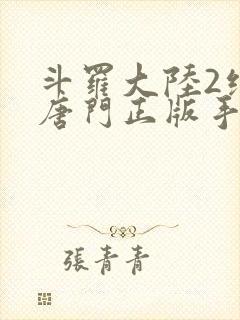 斗羅大陸2
唐門正版手
張青青